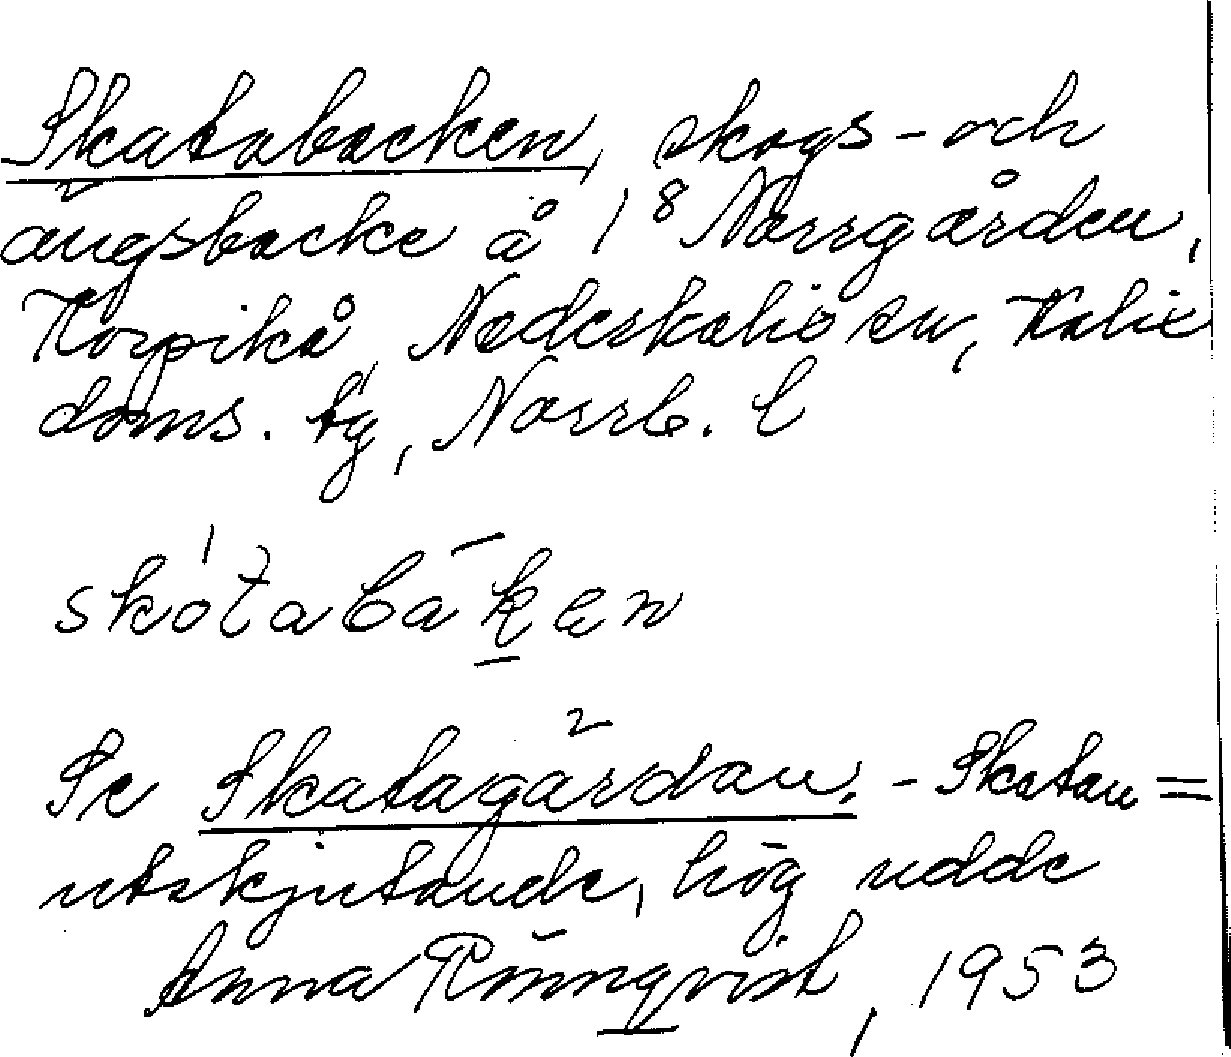 Skatabacken, skogs- och
ängsbacke å 1⁸ Norrgården,
Korpikå, Nederkalix sn, Kalix
doms. tg, Norrb. l
Se Skatagärdan. - Skatan =
utskjutande, hög udde
Anna Rönnqvist, 1953